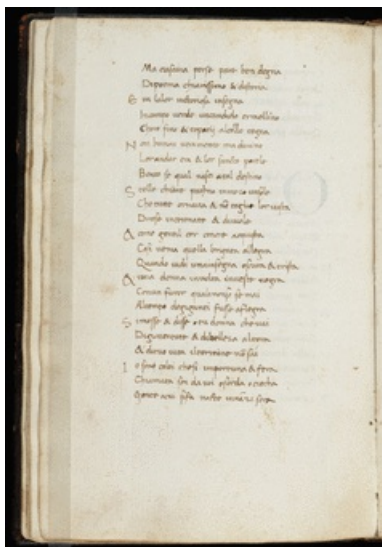 Ma ciascuna per se parea ben degna
Di poema chiarissimo & distoria
E ra la lor victoriosa insegna
In campo verde un candido ermellino
Choro fino & topacij al collo tegna
N on human veramente ma divino
Lor andar era & lor sancte parole
Beato se qual nasce a tal destino
S telle chiare in mezo un sole
Che tutte ornava & nō lor vista
Di rose incoronate & di viole
E come gentil cor honore acquista
Cosi venia quella brigata allegra
Quando vidi una insegna oscura & trista
E una donna involta in veste negra
Con un furor qual se mai
Al tempo de giganti fusse a flegra
S i mosse & disse o tu donna che vai
Di gioventute & di belleza altera
& di tua vita il termine nō sai
I o sono colei che si importuna & fera
Chiamata son da voi & sorda & ciecha
Gente a cui si fa notte sera